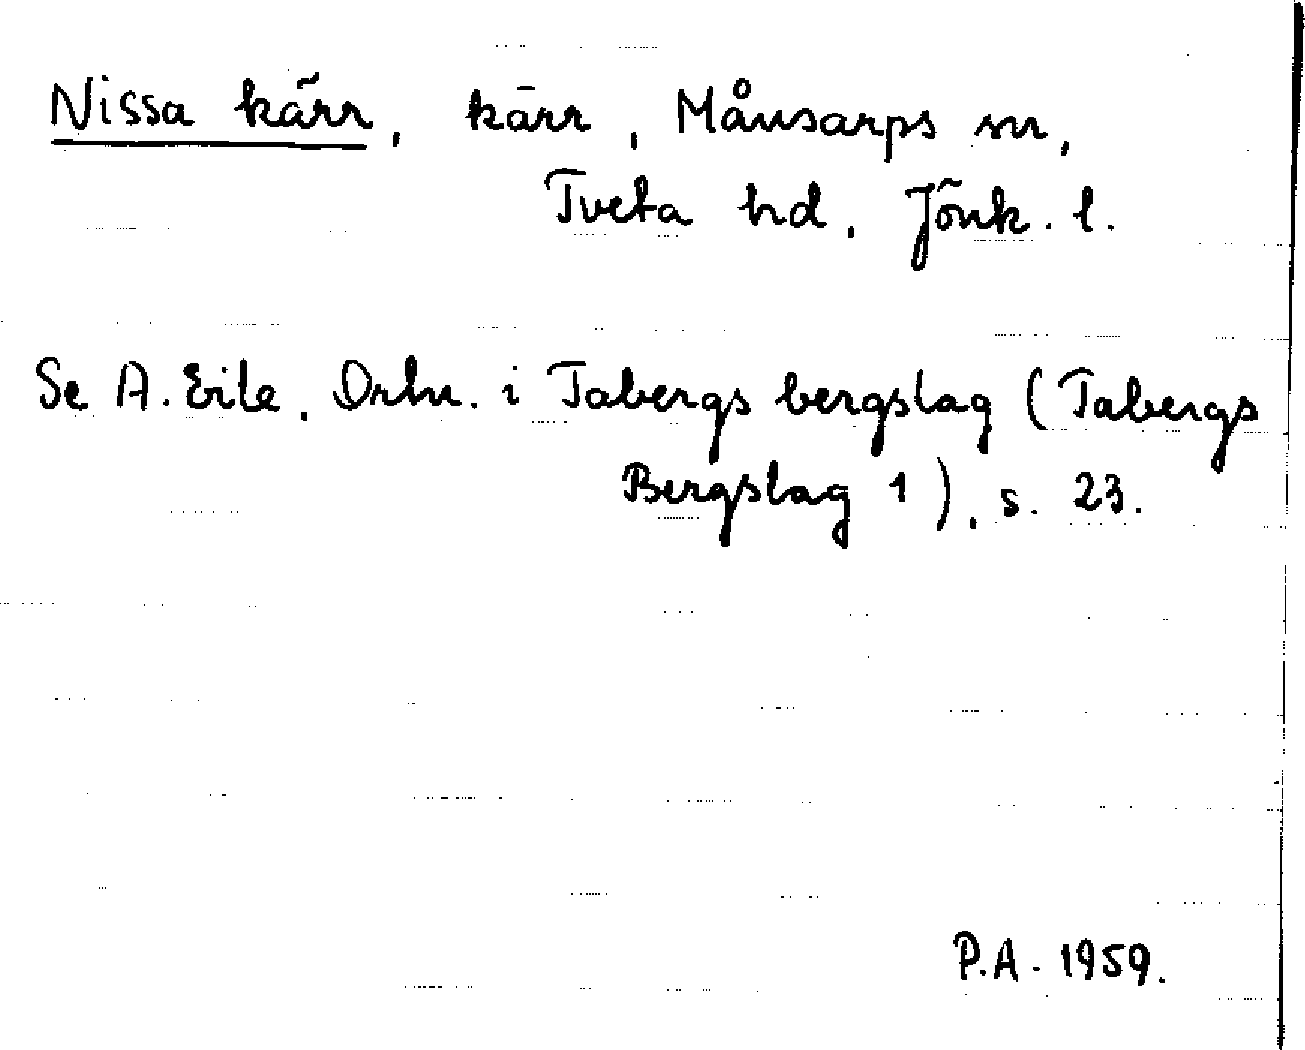 Nissa kärr, kärr, Månsarps sn,
Tveta hd, Jönk. l.
Se A. Ejle, Ortn. i Tabergs bergslag (Tabergs
Bergslag 1), s. 23.
P.A. 1959.